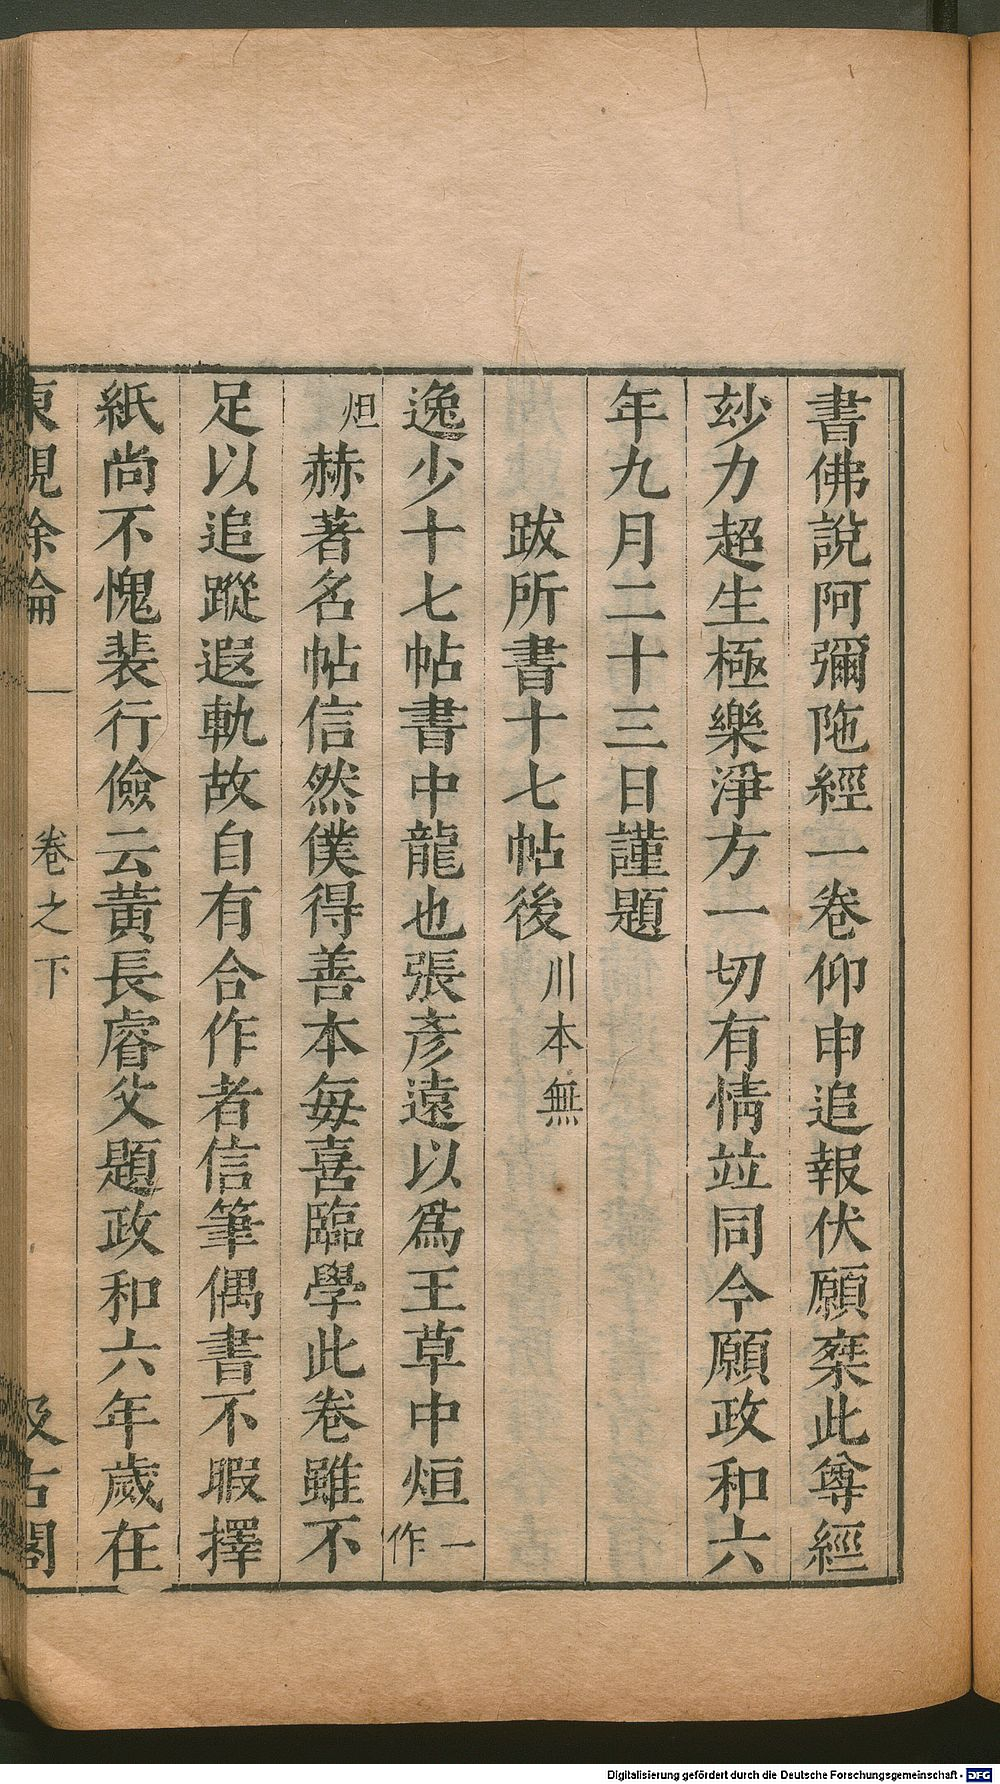 書佛說阿彌陁經一卷仰申追報伏願椉此尊經
玅力超生極樂淨方一切有情並同今願政和六
年九月二十三日謹題
跋所書十七帖後川本無
逸少十七帖書中龍也張彥遠以爲王草中烜一作
烜赫著名帖信然僕得善本每喜臨學此卷雖不
足以追蹤遐軌故自有合作者信筆偶書不暇擇
紙尚不愧裴行儉云黃長睿父題政和六年歲在
東觀餘論 一 卷之下 汲古閣
Digitalisierung gefördert durch die Deutsche Forschungsgemeinschaft - DFG